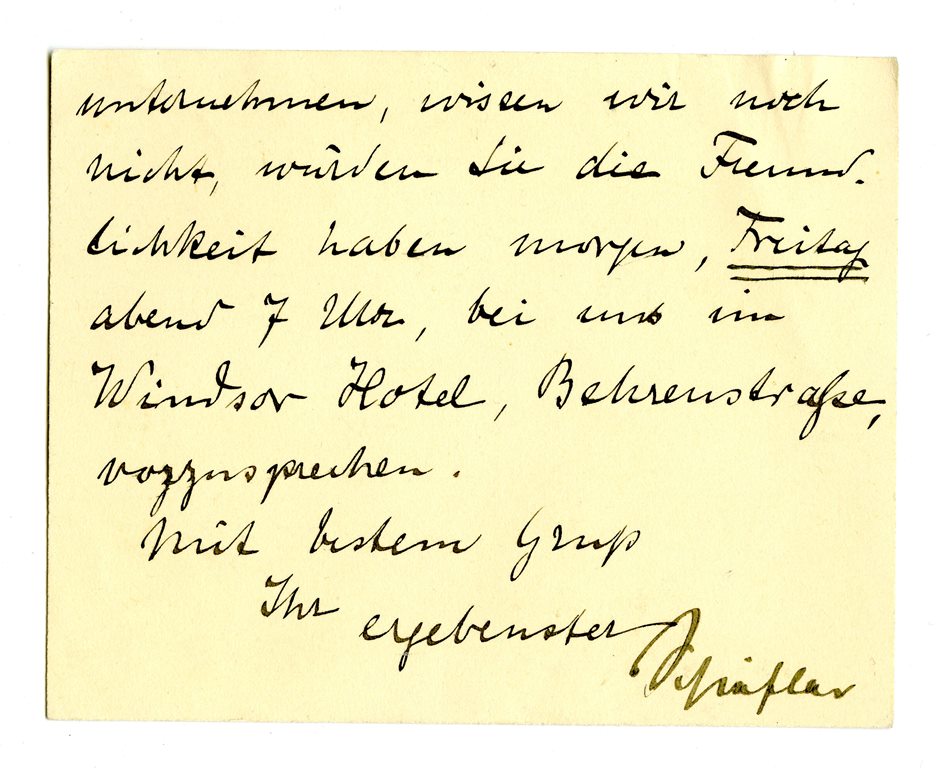 unternehmen, wissen wir noch
nicht, würden Sie die Freund-
lichkeit haben morgen, Freitag
abend 7 Uhr, bei uns im
Windsor Hotel, Behrenstraße,
vorzusprechen.
Mit bestem Gruß
Ihr ergebenster